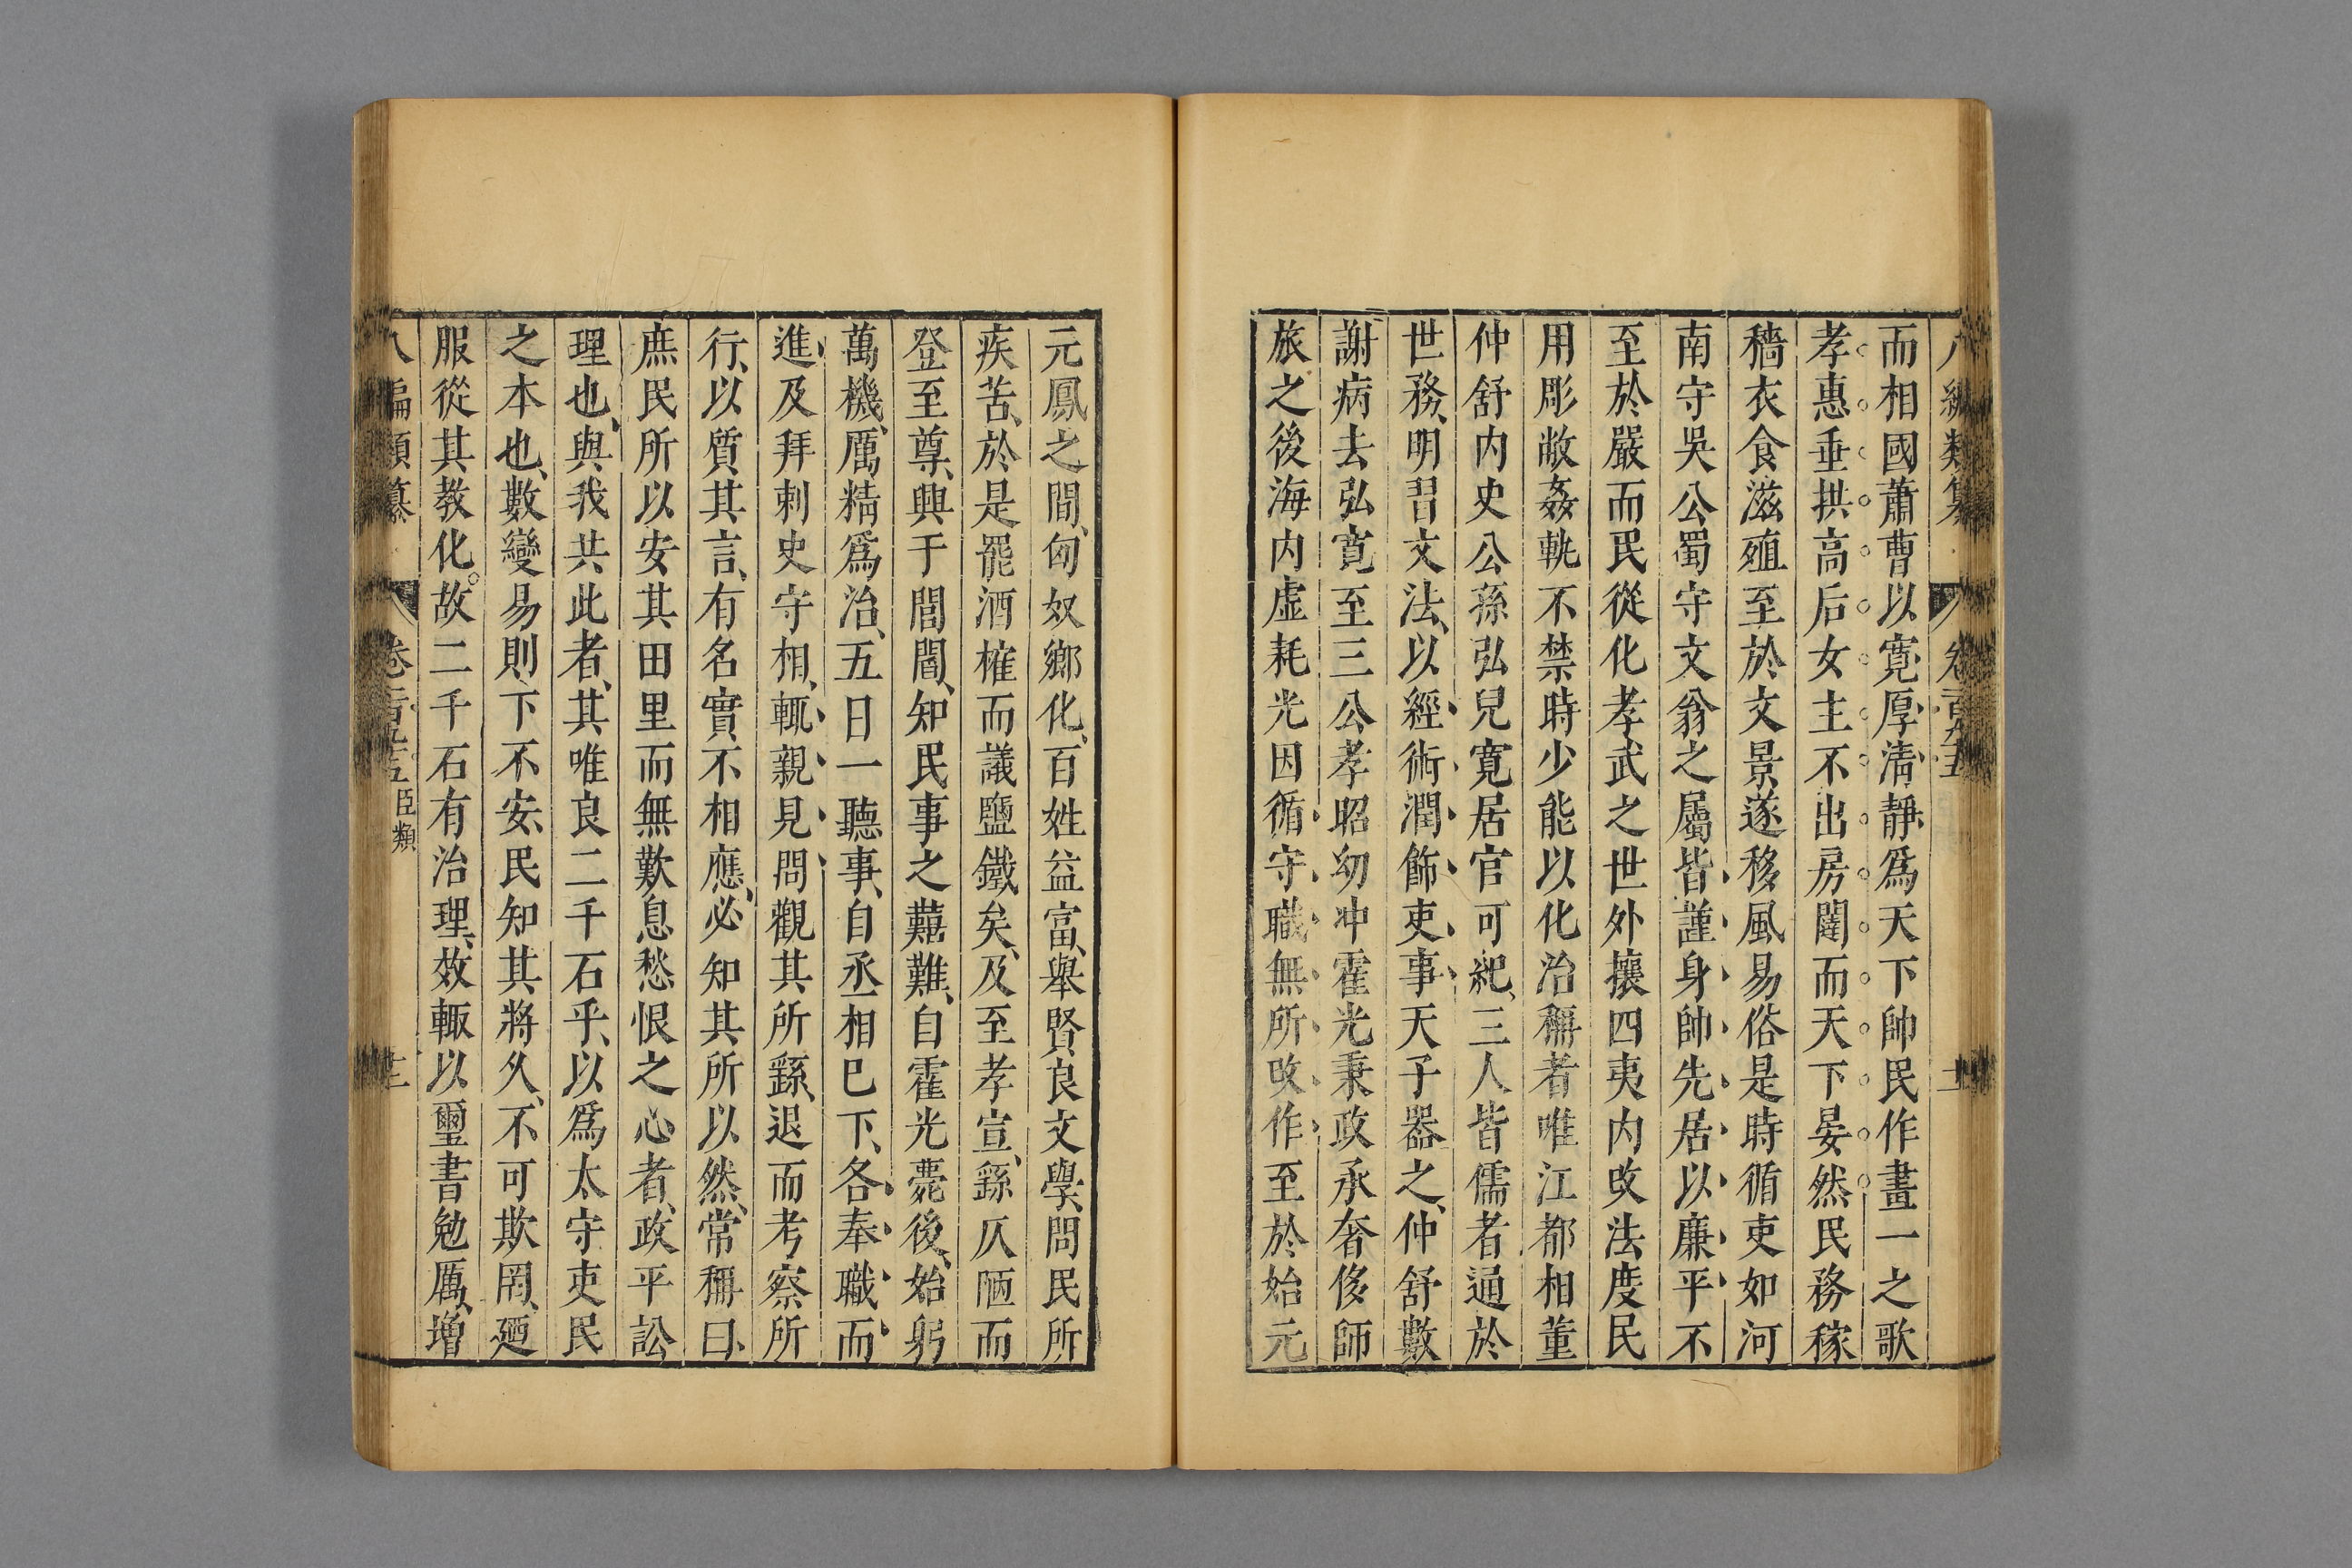 而相國蕭曹以寬厚清靜爲天下帥民作畫一之歌
孝惠垂拱高后女主不出房闥而天下晏然民務稼
穡衣食滋殖至於文景遂移風易俗是時循吏如河
南守吳公蜀守文翁之屬皆謹身帥先居以廉平不
至於嚴而民從化孝武之世外攘四夷内改法度民
用彫敝姦軌不禁時少能以化治稱者唯江都相董
仲舒内史公孫弘兒寬居官可紀三人皆儒者通於
世務明習文法以經術潤飾吏事天子器之仲舒數
謝病去弘寬至三公孝昭幼冲霍光秉政承奢侈師
旅之後海内虛耗光因循守職無所改作至於始元
元鳳之間匈奴鄉化百姓益富舉賢良文學問民所
疾苦於是罷酒榷而議鹽鐵矣及至孝宣繇仄陋而
登至尊興于閭閻知民事之囏難自霍光薨後始躬
萬機厲精爲治五日一聽事自丞相已下各奉職而
進及拜刺史守相輒親見問觀其所繇退而考察所
行以質其言有名實不相應必知其所以然常稱曰
庶民所以安其田里而無歎息愁恨之心者政平訟
理也與我共此者其唯良二千石乎以爲太守吏民
之本也數變易則下不安民知其將久不可欺罔廼
服從其教化故二千石有治理效輒以璽書勉厲增
八編類纂 臣類